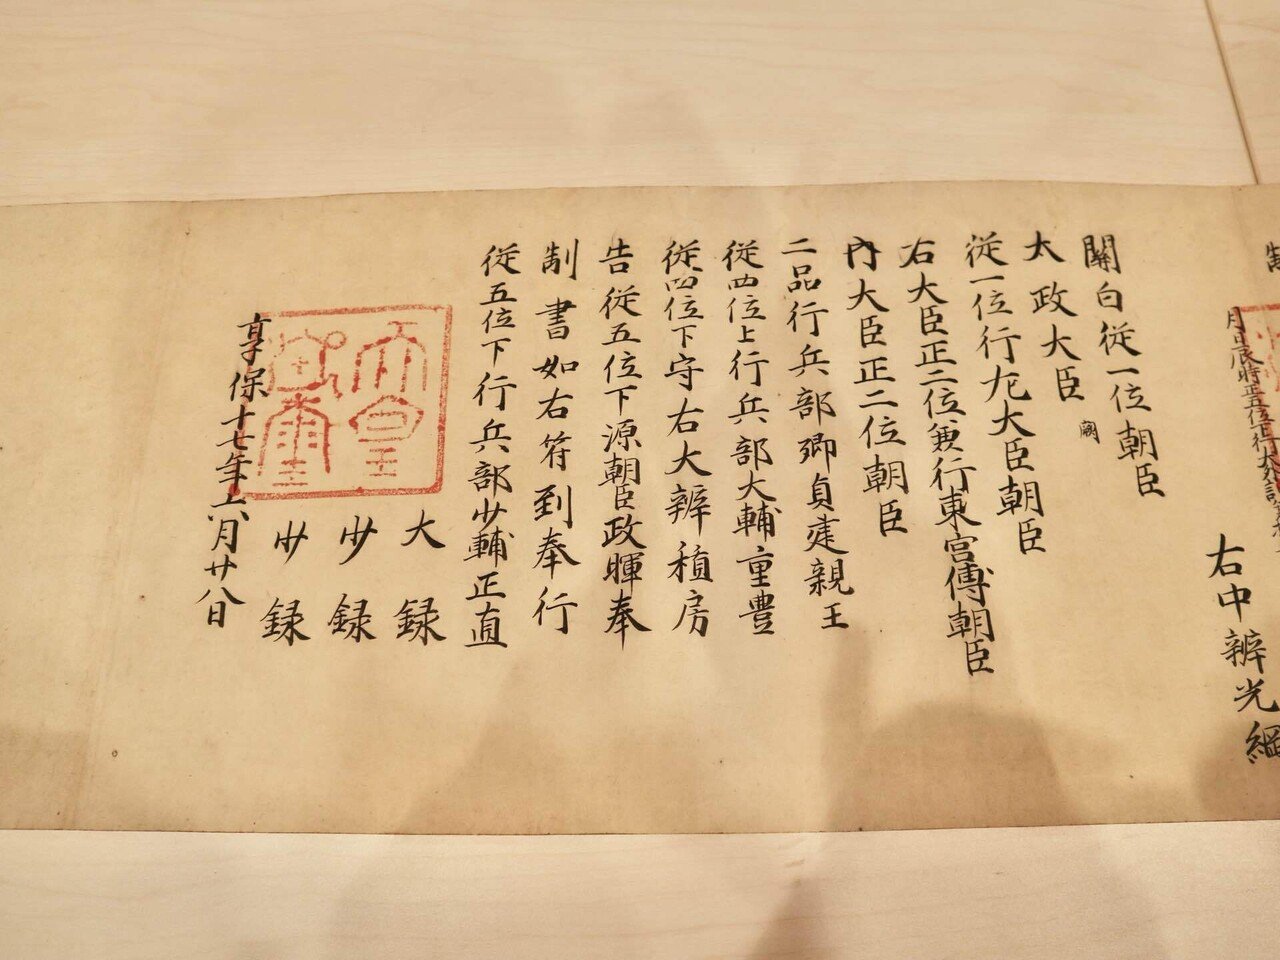 制
月日辰時正五位上行大外記
右中辨光綱
關白從一位朝臣
太政大臣 闕
從一位行左大臣朝臣
右大臣正二位兼行東宮傅朝臣
内大臣正二位朝臣
二品行兵部卿貞建親王
從四位上行兵部大輔重豊
從四位下守右大辨積房
告從五位下源朝臣政暉奉
制書如右符到奉行
從五位下行兵部少輔正直
大録
少録
少録
享保十七年六月廿八日
天皇御璽